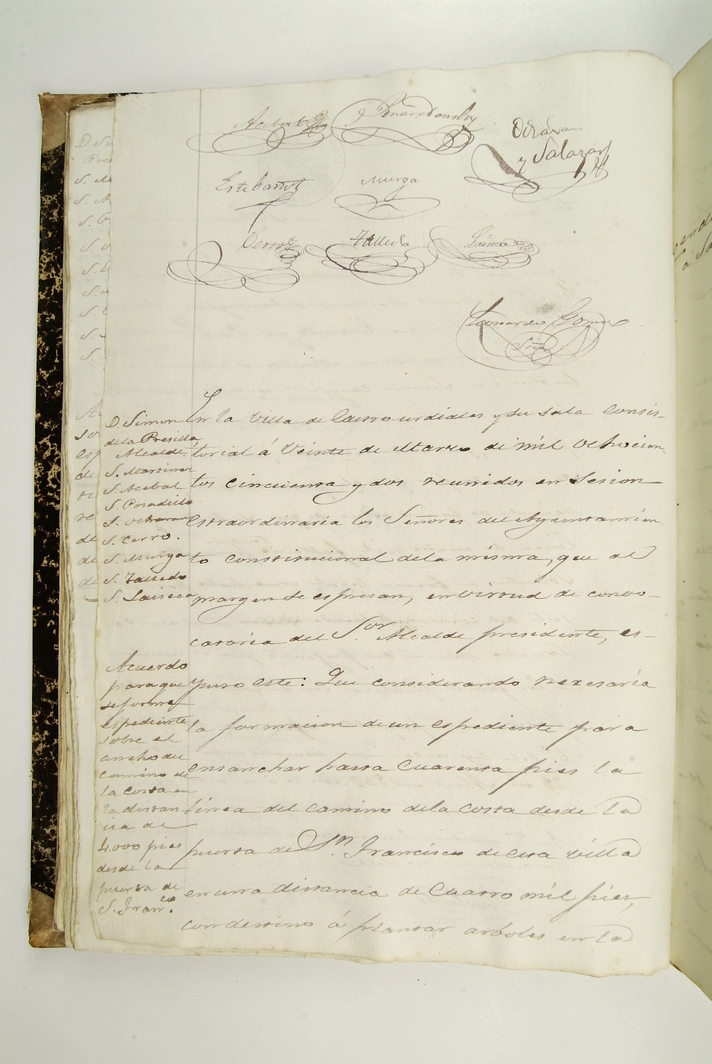 Acebal
Octavio
y Salazar
Estebanot
Murga
Cerro
Talledo
Laiseca
Leonardo Gomez
Srio
D. Simon
de la Presilla
Alcalde
S. Acebal
S. Posadillo
S. Cerro.
S. Murga
S. Talledo
S. Laiseca
Acuerdo
para que
se forme
espediente
sobre el
ancho del
camino de
la costa en
la distan
cia de
4.000 pies
desde la
puerta de
S. Fran.co
En la Villa de Castro urdiales y su sala consis-
torial á Veinte de Marzo de mil Ochocien-
tos cincuenta y dos reunidos en Sesion
estraordinaria los Señores del Ayuntamien
to constitucional de la misma, que al
margen se espresan, en virtud de convo-
catoria del Sor. Alcalde presidente, es-
puso este: Que considerando nezesaria
la formacion de un espediente para
ensanchar hasta Cuarenta pies la
linea del camino de la Costa desde la
puerta de Sn. Francisco de esta Villa
en una distancia de Cuatro mil pies,
con destino á plantar arboles en la